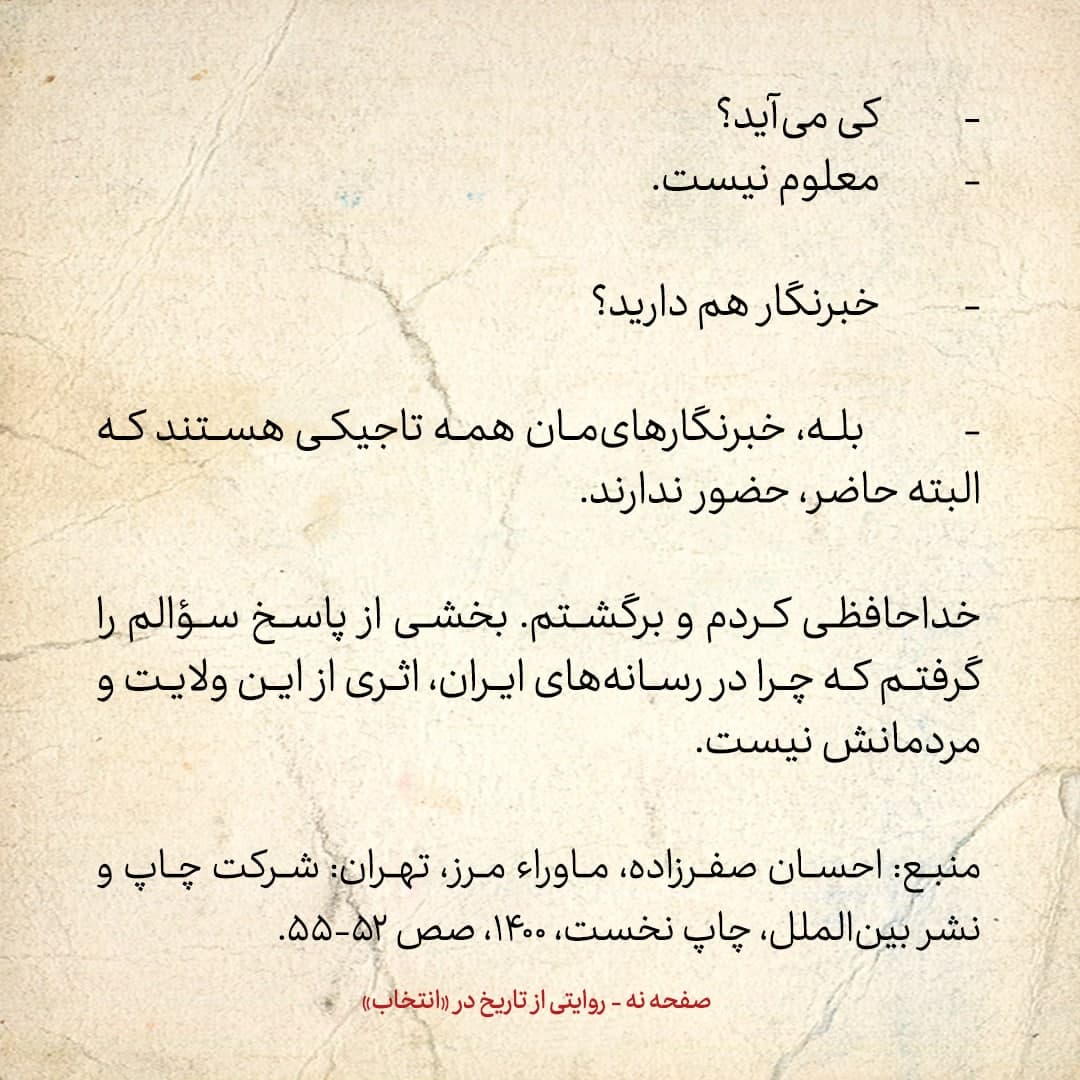 - کی می‌آید؟
- معلوم نیست.
- خبرنگار هم دارید؟
- بله، خبرنگارهای‌مان همه تاجیکی هستند که
البته حاضر، حضور ندارند.
خداحافظی کردم و برگشتم. بخشی از پاسخ سؤالم را
گرفتم که چرا در رسانه‌های ایران، اثری از این ولایت و
مردمانش نیست.
منبع: احسان صفرزاده، ماوراء مرز، تهران: شرکت چاپ و
نشر بین‌الملل، چاپ نخست، ۱۴۰۰، صص ۵۲-۵۵.
صفحه نه - روایتی از تاریخ در «انتخاب»